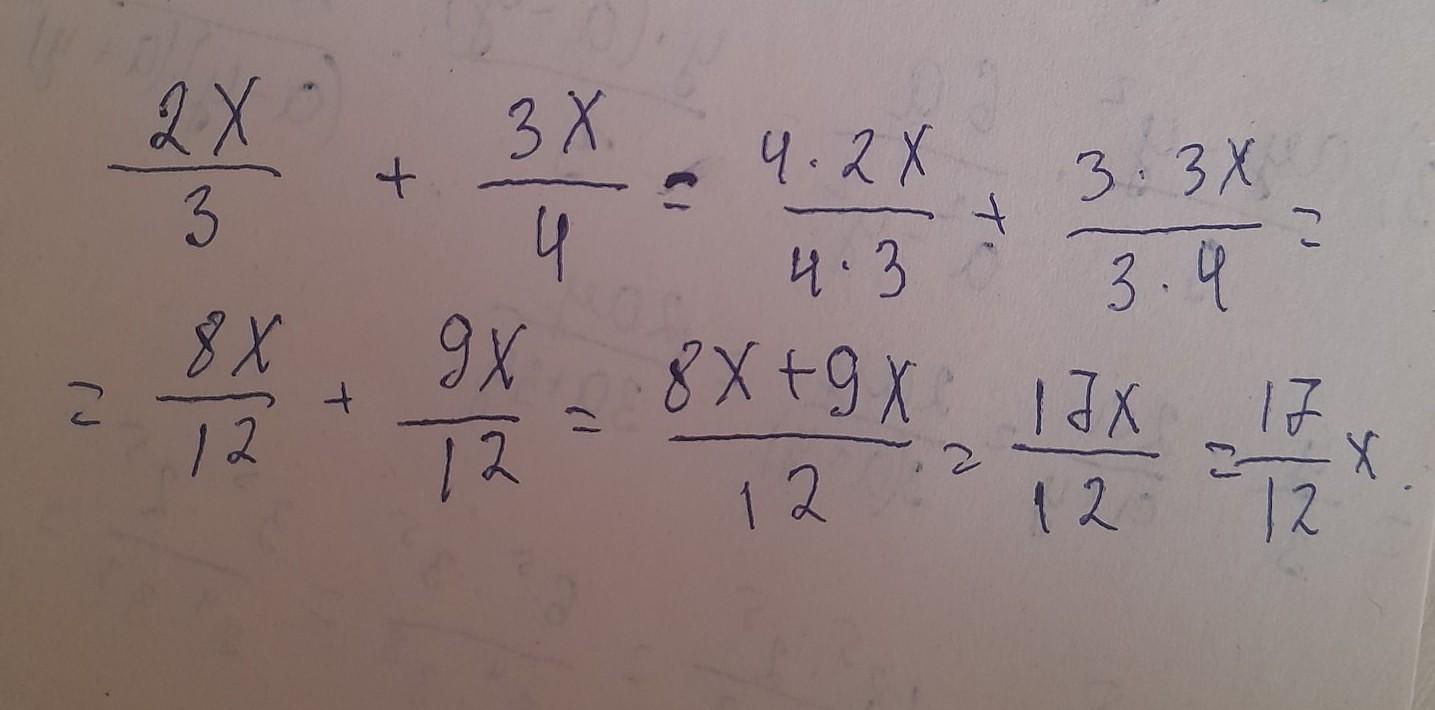 2x/3 + 3x/4 = 4·2x/4·3 + 3·3x/3·4 =
= 8x/12 + 9x/12 = 8x+9x/12 = 17x/12 = 17/12 x.